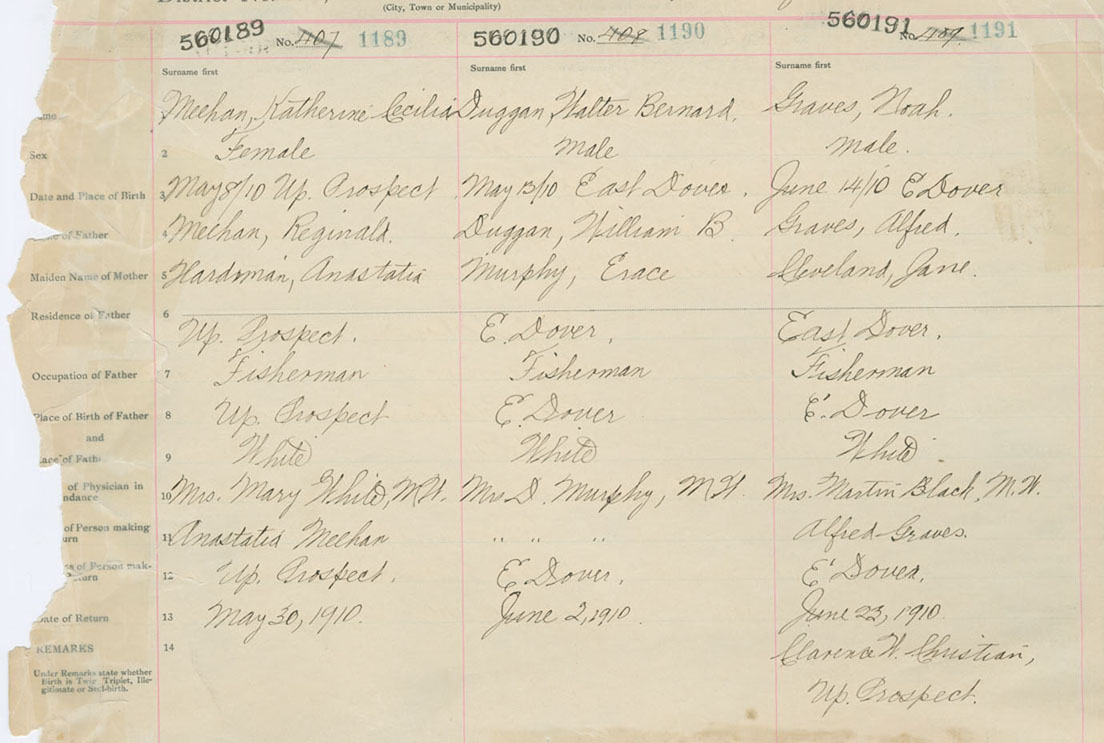 (City, Town or Municipality)
560189 No. 407 1189 560190 No. 408 1190 560191 No. 409 1191
Surname first Surname first Surname first
Meehan, Katherine Cecilia Duggan, Walter Bernard. Graves, Noah.
Sex 2 Female Male Male.
Date and Place of Birth 3 May 8/10 Up. Prospect May 13/10 East Dover. June 14/10 E Dover
of Father 4 Meehan, Reginald. Duggan, William B. Graves, Alfred.
Maiden Name of Mother 5 Hardsman, Anastatia Murphy, Erace Cleveland, Jane.
Residence of Father 6
Up. Prospect. E. Dover, East Dover.
Occupation of Father 7 Fisherman Fisherman Fisherman
Place of Birth of Father 8 Up. Prospect E. Dover E. Dover
and
of Father 9 White White White
of Physician in
10 Mrs. Mary White, M.W. Mrs D. Murphy, M W. Mrs. Martin Black, M.W.
of Person making
11 Anastatia Meehan " " " Alfred Graves.
of Person mak-
12 Up. Prospect. E Dover. E Dover.
Date of Return 13 May 30, 1910. June 2, 1910. June 23, 1910.
REMARKS 14
Clarence W. Christian,
Under Remarks state whether
Birth is Twin Triplet, Ille-
gitimate or Still-birth.
Up. Prospect.